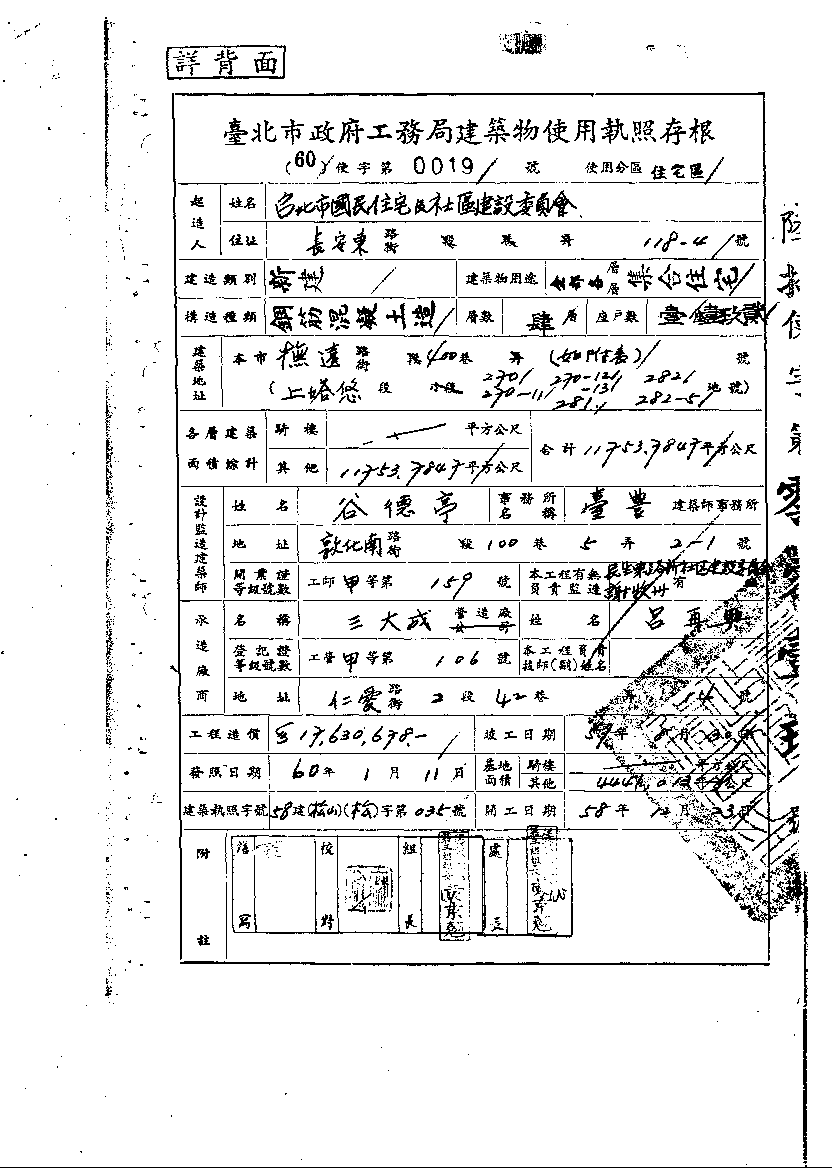 詳背面
臺北市政府工務局建築物使用執照存根
(60)使字第0019號 使用分區 住宅區
起造人 姓名 台北市國民住宅及社區建設委員會
住址 長安東路街 段 巷 弄 118-4號
建造類別 新建 建築物用途 全部各層層集合住宅
構造種類 鋼筋混凝土造 層數 肆層 座戶數
建築地址 本市撫遠路街 段400巷 弄 號
(上塔悠段 小段 2701 270-121 2821
270-11 -131 地號)
281 282-51
各層建築面積綜計 騎樓 平方公尺 合計 11753.7847平方公尺
其他 11753.7847平方公尺
設計監造建築師 姓名 谷德亭 事務所名稱 臺豐建築師事務所
地址 敦化南路街 段100巷5弄2-1號
開業證等級號數 工師甲等第159號 本工程有無負責監造 有
承造廠商 名稱 三大成營造廠公司 姓名 呂再
登記證等級號數 工營甲等第106號 本工程負責技師(副)姓名
地址 仁愛路街2段42巷 弄 14號
工程造價 17,630,678.- 竣工日期 59年8月30日
發照日期 60年1月11日 基地面積 騎樓 平方公尺
其他 平方公尺
建築執照字號 58建(松山)(松)字第035號 開工日期 58年12月23日
附註 繕寫 校對 組長 處長